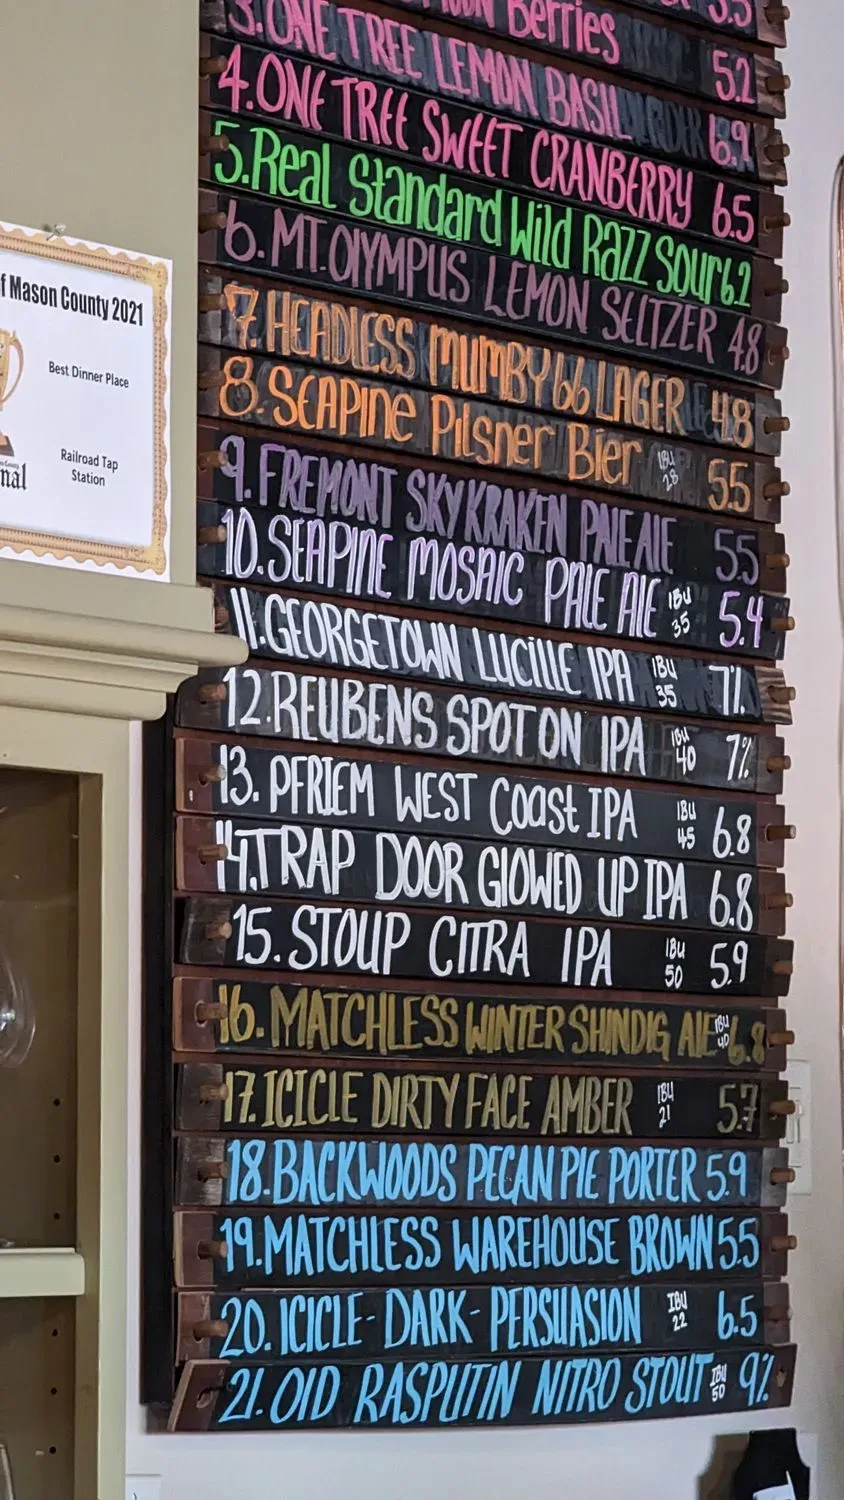 3.5
Berries 5.2
3. ONE TREE LEMON BASIL 6.9
4. ONE TREE SWEET CRANBERRY 6.5
5. Real Standard Wild Razz Sour 6.2
6. MT. OlYMPUS LEMON SELTZER 4.8
7. HEADLESS MUMBY 66 LAGER 4.8
8. SEAPINE Pilsner Bier IBU 28 5.5
9. FREMONT SKY KRAKEN PALE AlE 5.5
10. SEAPINE MOSAIC PALE AlE IBU 35 5.4
11. GEORGETOWN LUCIllE IPA IBU 35 7%
12. REUBENS SPOT ON IPA IBU 40 7%
13. PFRIEM WEST Coast IPA IBU 45 6.8
14. TRAP DOOR GlOWED UP IPA 6.8
15. STOUP CITRA IPA IBU 50 5.9
16. MATCHLESS WINTER SHINDIG AlE IBU 40 6.8
17. ICICLE DIRTY FACE AMBER IBU 21 5.7
18. BACKWOODS PECAN PIE PORTER 5.9
19. MATCHLESS WAREHOUSE BROWN 5.5
20. ICICLE-DARK-PERSUASION IBU 22 6.5
21. OlD RASPUTIN NITRO STOUT IBU 50 9%
f Mason County 2021
Best Dinner Place
Railroad Tap
Station